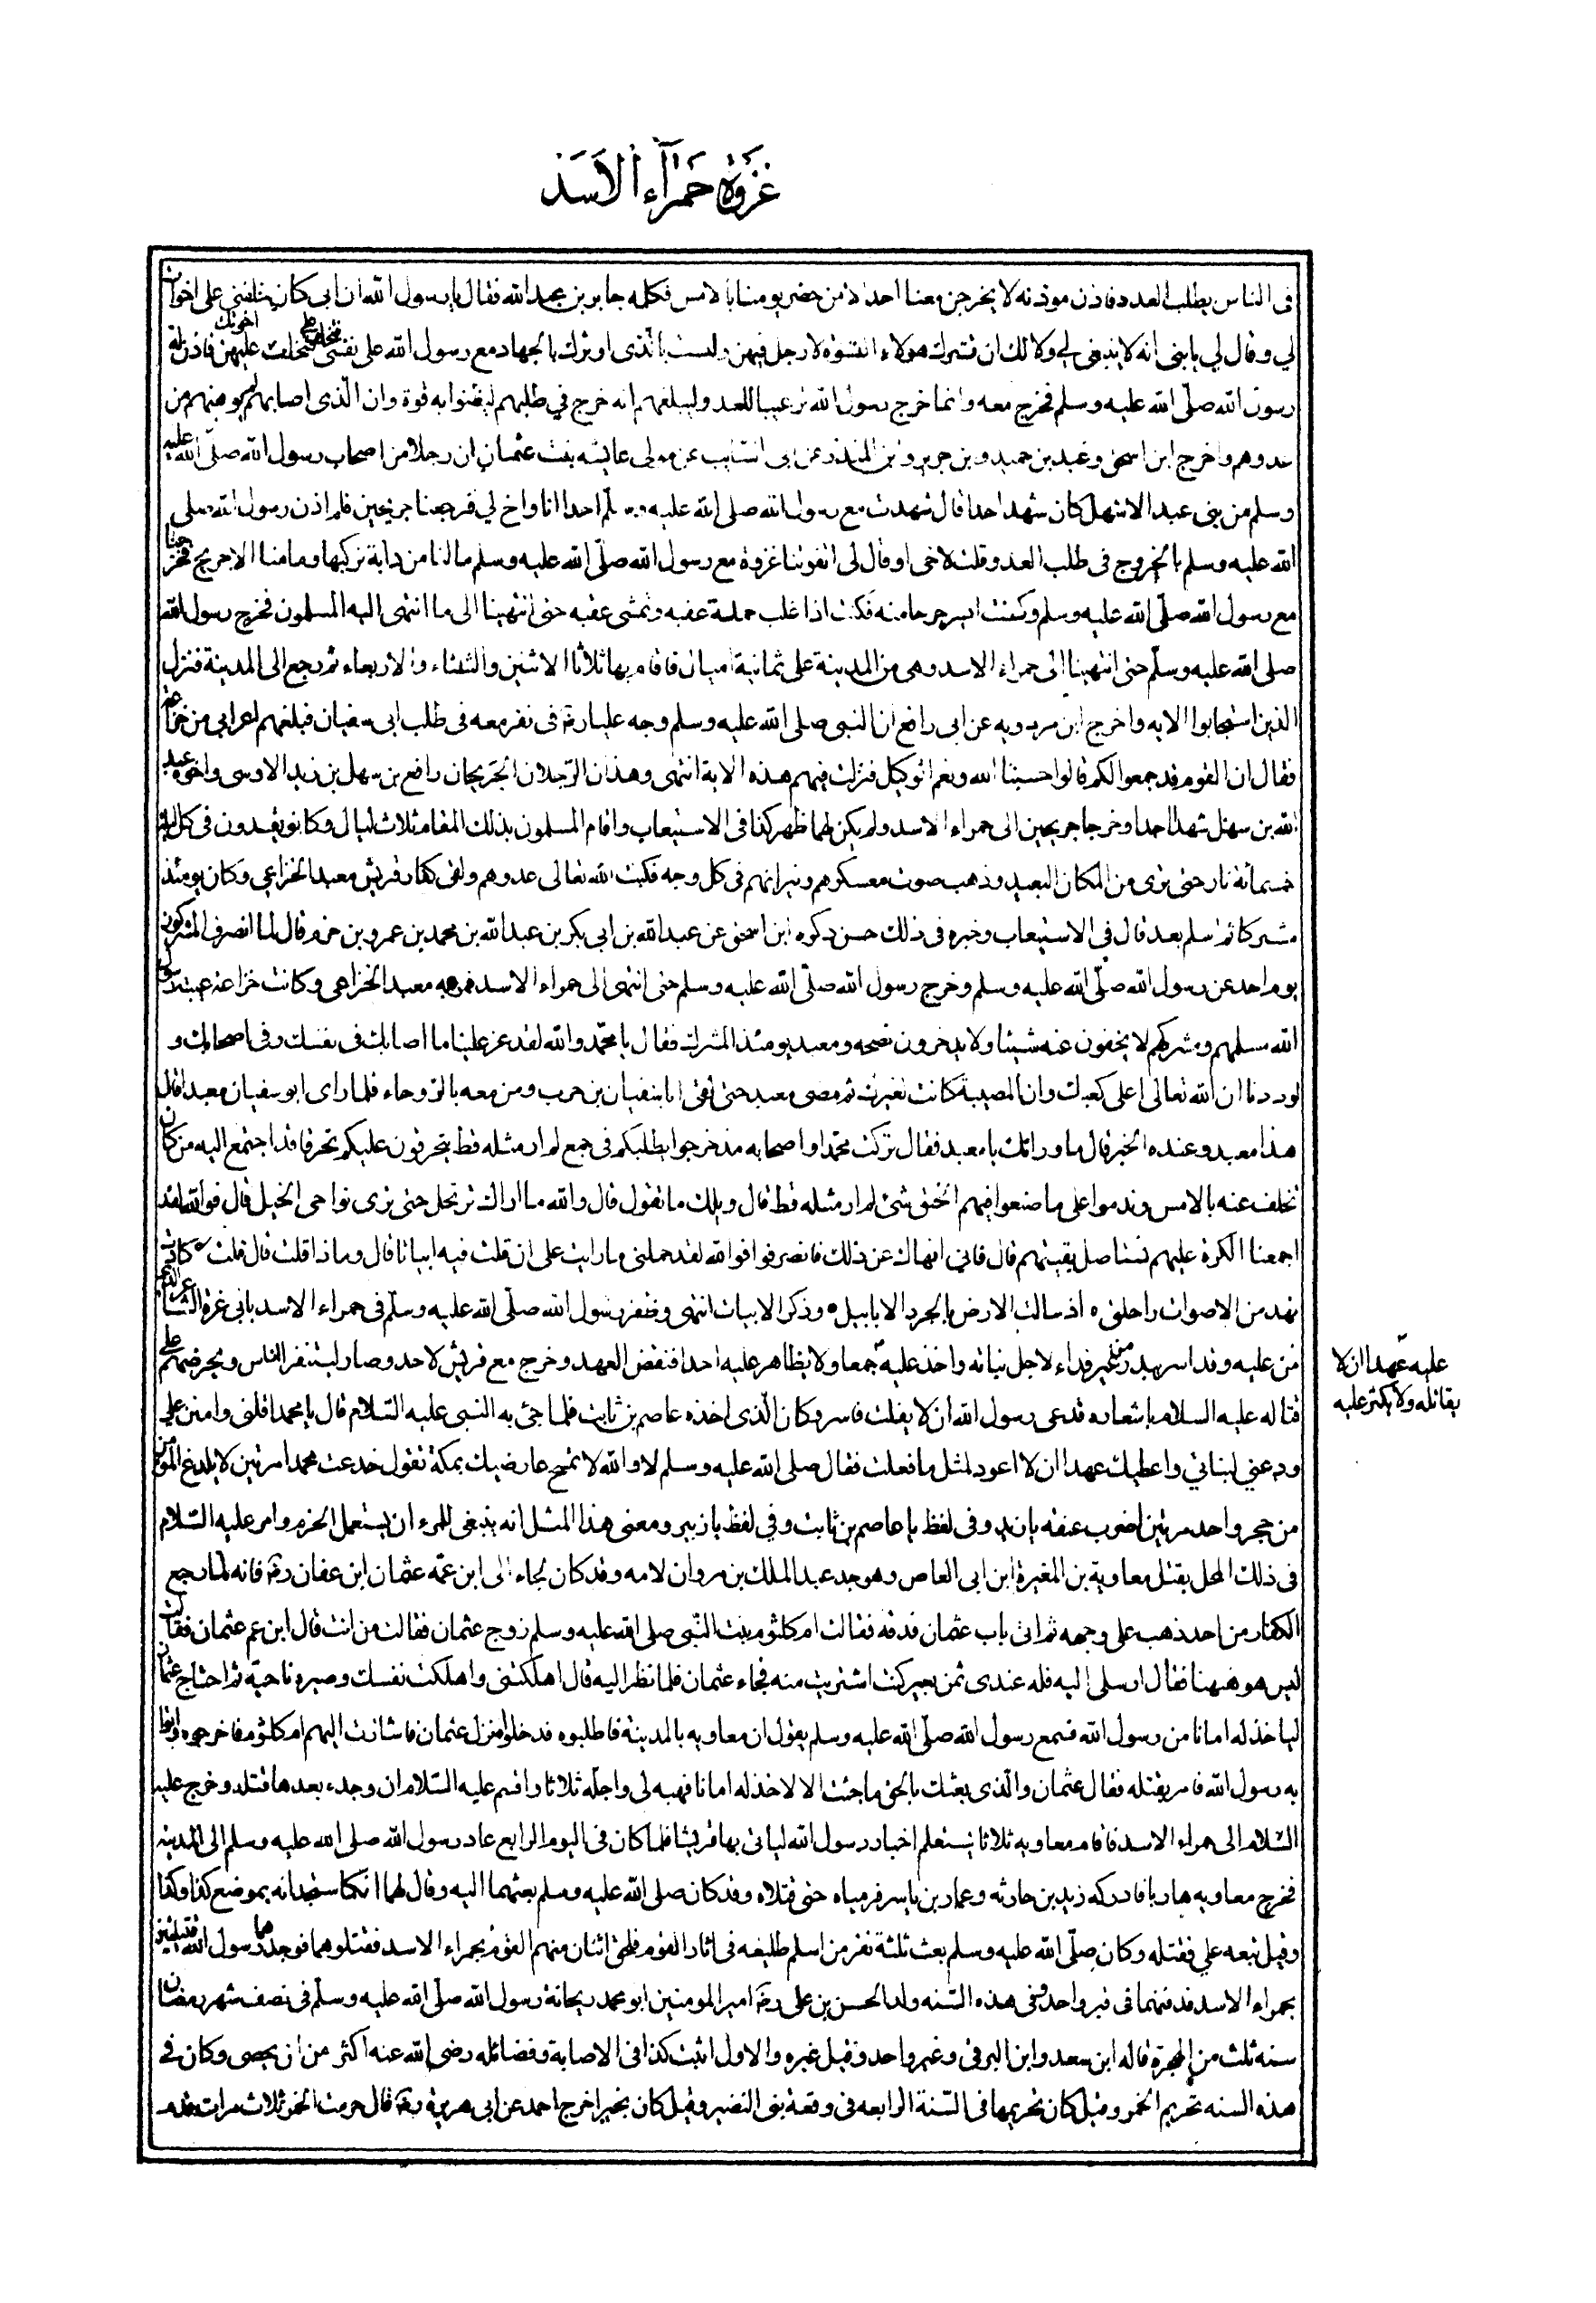 غَزوَة حَمرَآءِ الاَسَد
فى الناس يطلب العدد فاذن موذنه لا يخرجن معنا احد الا من حضر يومنا بالامس فكلمه جابر بن عبد الله فقال يا رسول الله ان ابى كان خلفنى على اخوات
لي وقال لي يا بنى انه لا ينبغى لي ولا لك ان نترك هولاء النسوة لا رجل فيهن ولست بالذى اوثرك بالجهاد مع رسول الله على نفسى فتخلف على اخوتك فتخلفت عليهن فاذن له
رسول الله صلّى الله عليه وسلم فخرج معه وانما خرج رسول الله ترعيبا للعدو ليبلغهم انه خرج في طلبهم ليظنوا به قوة وان الّذى اصابهم لم يوهنهم من
عدوهم واخرج ابن اسحق وعبد بن حميد وبن جرير وبن المنذر عن ابى السائب عن مولى عائشه بنت عثمان ان رجلا من اصحاب رسول الله صلّى الله عليه
وسلم من بنى عبد الاشهل كان شهد احدا قال شهدت مع رسول الله صلى الله عليه وسلم احدا انا واخ لي فرجعنا جريحين فلم اذن رسول الله صلى
الله عليه وسلم بالخروج فى طلب العدو قلت لاخى او قال لى اتفوتنا غزوة مع رسول الله صلّى الله عليه وسلم مالنا من دابة نركبها وما منا الا جريح فخرجنا
مع رسول الله صلّى الله عليه وسلم وكنت ايسر جرحا منه فكنت اذا غلب حملته عقبه ونمشى عقبه حتى انتهينا الى ما انتهى اليه المسلمون فخرج رسول الله
صلى الله عليه وسلّم حتى انتهينا الى حمراء الاسد وهى من المدينة على ثمانية اميال فاقام بها ثلاثا الاثنين والثلثاء والاربعاء ثم رجع الى المدينة فنزل
الذين استجابوا الايه واخرج ابن مردويه عن ابى رافع ان النبى صلى الله عليه وسلم وجه عليا رضه فى نفر معه فى طلب ابى سفيان فبلغهم اعرابي من خزاعة
فقال ان القوم قد جمعوا لكم قالوا حسبنا الله ونعم الوكيل فنزلت فيهم هذه الاية انتهى وهذان الرّجلان الجريحان رافع بن سهل بن زيد الاوسى واخوه عبد
الله بن سهل شهدا احدا وخرجا جريحين الى حمراء الاسد ولم يكن لهما ظهر كذا فى الاستيعاب واقام المسلمون بذلك المقام ثلاث ليال وكانو يقدون فى كل ليلة
خمسمائة نار حتى ترى من المكان البعيد وذهب صوت معسكرهم ونيرانهم فى كل وجه فكبت الله تعالى عدوهم ولقى كفار قريش معبد الخزاعي وكان يومئذ
مشركا ثم اسلم بعد قال في الاستيعاب وخبره فى ذلك حسن ذكره ابن اسحق عن عبد الله بن ابي بكر بن عبد الله بن محمد بن عمرو بن حزم قال لما انصرف المشركون
يوم احد عن رسول الله صلّى الله عليه وسلم وخرج رسول الله صلّى الله عليه وسلم حتى انتهى الى حمراء الاسد فمر به معبد الخزاعى وكانت خزاعة عيبة رسول
الله مسلمهم ومشركهم لا يخفون عنه شيئا ولا يدخرون نصحه ومعبد يومئذ المشرك فقال يا محمّد والله لقد عز علينا ما اصابك فى نفسك وفى اصحابك و
لوددنا ان الله تعالى اعلى كعبك وان المصيبة كانت لغيرك ثم مضى معبد حتى لقى ابا سفيان بن حرب ومن معه بالروحاء فلما راى ابو سفيان معبدا قال
هذا معبد وعنده الخبر قال ما ورائك يا معبد فقال تركت محمّدا واصحابه قد خرجوا يطلبكم فى جمع لم ار مثله قط يتحرقون عليكم تحرقا قد اجتمع اليه من كان
تخلف عنه بالامس وندموا على ما صنعوا فيهم الحنق شئ لم ار مثله قط قال ويلك ما تقول قال والله ما اراك ترتحل حتى ترى نواحى الخيل قال فوالله لقد
اجمعنا الكرة عليهم نستاصل بقيتهم قال فاني انهاك عن ذلك فانصرفوا فوالله لقد حملنى ما رايت على ان قلت فيه ابياتا قال وما ذا قلت قال قلت كادت
تهد من الاصوات راحلتى ٥ اذ سالت الارض بالجرد الابابيل ٥ وذكر الابيات انتهى وظفر رسول الله صلّى الله عليه وسلّم فى حمراء الاسد بابى عزة الشاعر الذى
من عليه وقد اسر ببدر من غير فداء لاجل بناته واخذ عليه جمعا ولا يظاهر عليه احدا فنقض العهد وخرج مع قريش لاحد وصار يستنفر الناس ويحرضهم على
عليه عهدا ان لا
يقاتله ولا يكثر عليه
قتاله عليه السلام باشعاره فدعى رسول الله ان لا يفلت فاسر وكان الّذى اخذه عاصم بن ثابت فلما جئ به النبى عليه السّلام قال يا محمد اقلنى وامنن على
ودعنى لبناتي واعطيك عهدا ان لا اعود لمثل ما فعلت فقال صلى الله عليه وسلم لا والله لا تمسح عارضيك بمكة تقول خدعت محمدا مرتين لا يلدغ المومن
من جحر واحد مرتين اضرب عنقه يا زيد وفى لفظ يا عاصم بن ثابت وفي لفظ يا زبير ومعنى هذا المثل انه ينبغى للمرء ان يستعمل الحزم وامر عليه السّلام
فى ذلك المحل بقتل معاوية بن المغيرة ابن ابى العاص وهو جد عبد الملك بن مروان لامه وقد كان لجاء الى ابن عمّه عثمان ابن عفان رضه فانه لمّا رجع
الكفار من احد ذهب على وجهه ثم اتى باب عثمان فدقه فقالت ام كلثوم بنت النّبى صلى الله عليه وسلم زوج عثمان فقالت من انت قال ابن عم عثمان فقالت
ليس هو ههنا فقال ارسلى اليه فله عندى ثمن بعير كنت اشتريت منه فجاء عثمان فلما نظر اليه قال اهلكتنى واهلكت نفسك وصيره ناحية ثم احتاج عثمان
لياخذ له امانا من رسول الله فسمع رسول الله صلّى الله عليه وسلم يقول ان معاويه بالمدينة فاطلبوه فدخلوا منزل عثمان فاشارت اليهم ام كلثوم فاخرجوه واتوا
به رسول الله فامر بقتله فقال عثمان والّذى بعثك بالحق ما جئت الا لاخذ له امانا فهبه لى واجلّه ثلاثا واقسم عليه السّلام ان وجدء بعدها قتله وخرج عليه
السّلام الى حمراء الاسد فاقام معاويه ثلاثا يستعلم اخبار رسول الله لياتى بها قريشا فلما كان فى اليوم الرابع عاد رسول الله صلى الله عليه وسلم الى المدينه
فخرج معاويه هاربا فادركه زيد بن حارثه وعمار بن ياسر فرمياه حتى قتلاه وقد كان صلى الله عليه وسلم بعثهما اليه وقال لهما انكما ستجدانه بموضع كذا وكذا
وقيل تبعه علي فقتله وكان صلّى الله عليه وسلم بعث ثلثة نفر من اسلم طليعه فى اثار القوم فلحق اثنان منهم القوم بحمراء الاسد فقتلوهما فوجدهما رسول الله قتيلين
بحمراء الاسد فدفنهما فى قبر واحد وفى هذه السّنه ولد الحسن بن على رضه امير المومنين ابو محمد ريحانة رسول الله صلّى الله عليه وسلّم فى نصف شهر رمضان
سنه ثلث من الهجرة قاله ابن سعد وابن البرقى وغير واحد وقيل غيره والاول اثبت كذا فى الاصابة وفضائله رضى الله عنه اكثر من ان يحصى وكان فى
هذه السنه تحريم الخمر وقيل كان تحريمها فى السّنة الرابعه فى وقعة بنى النضير وقيل كان بخيبر اخرج احمد عن ابى هريرة رضه قال حرمت الخمر ثلاث مرات قدم